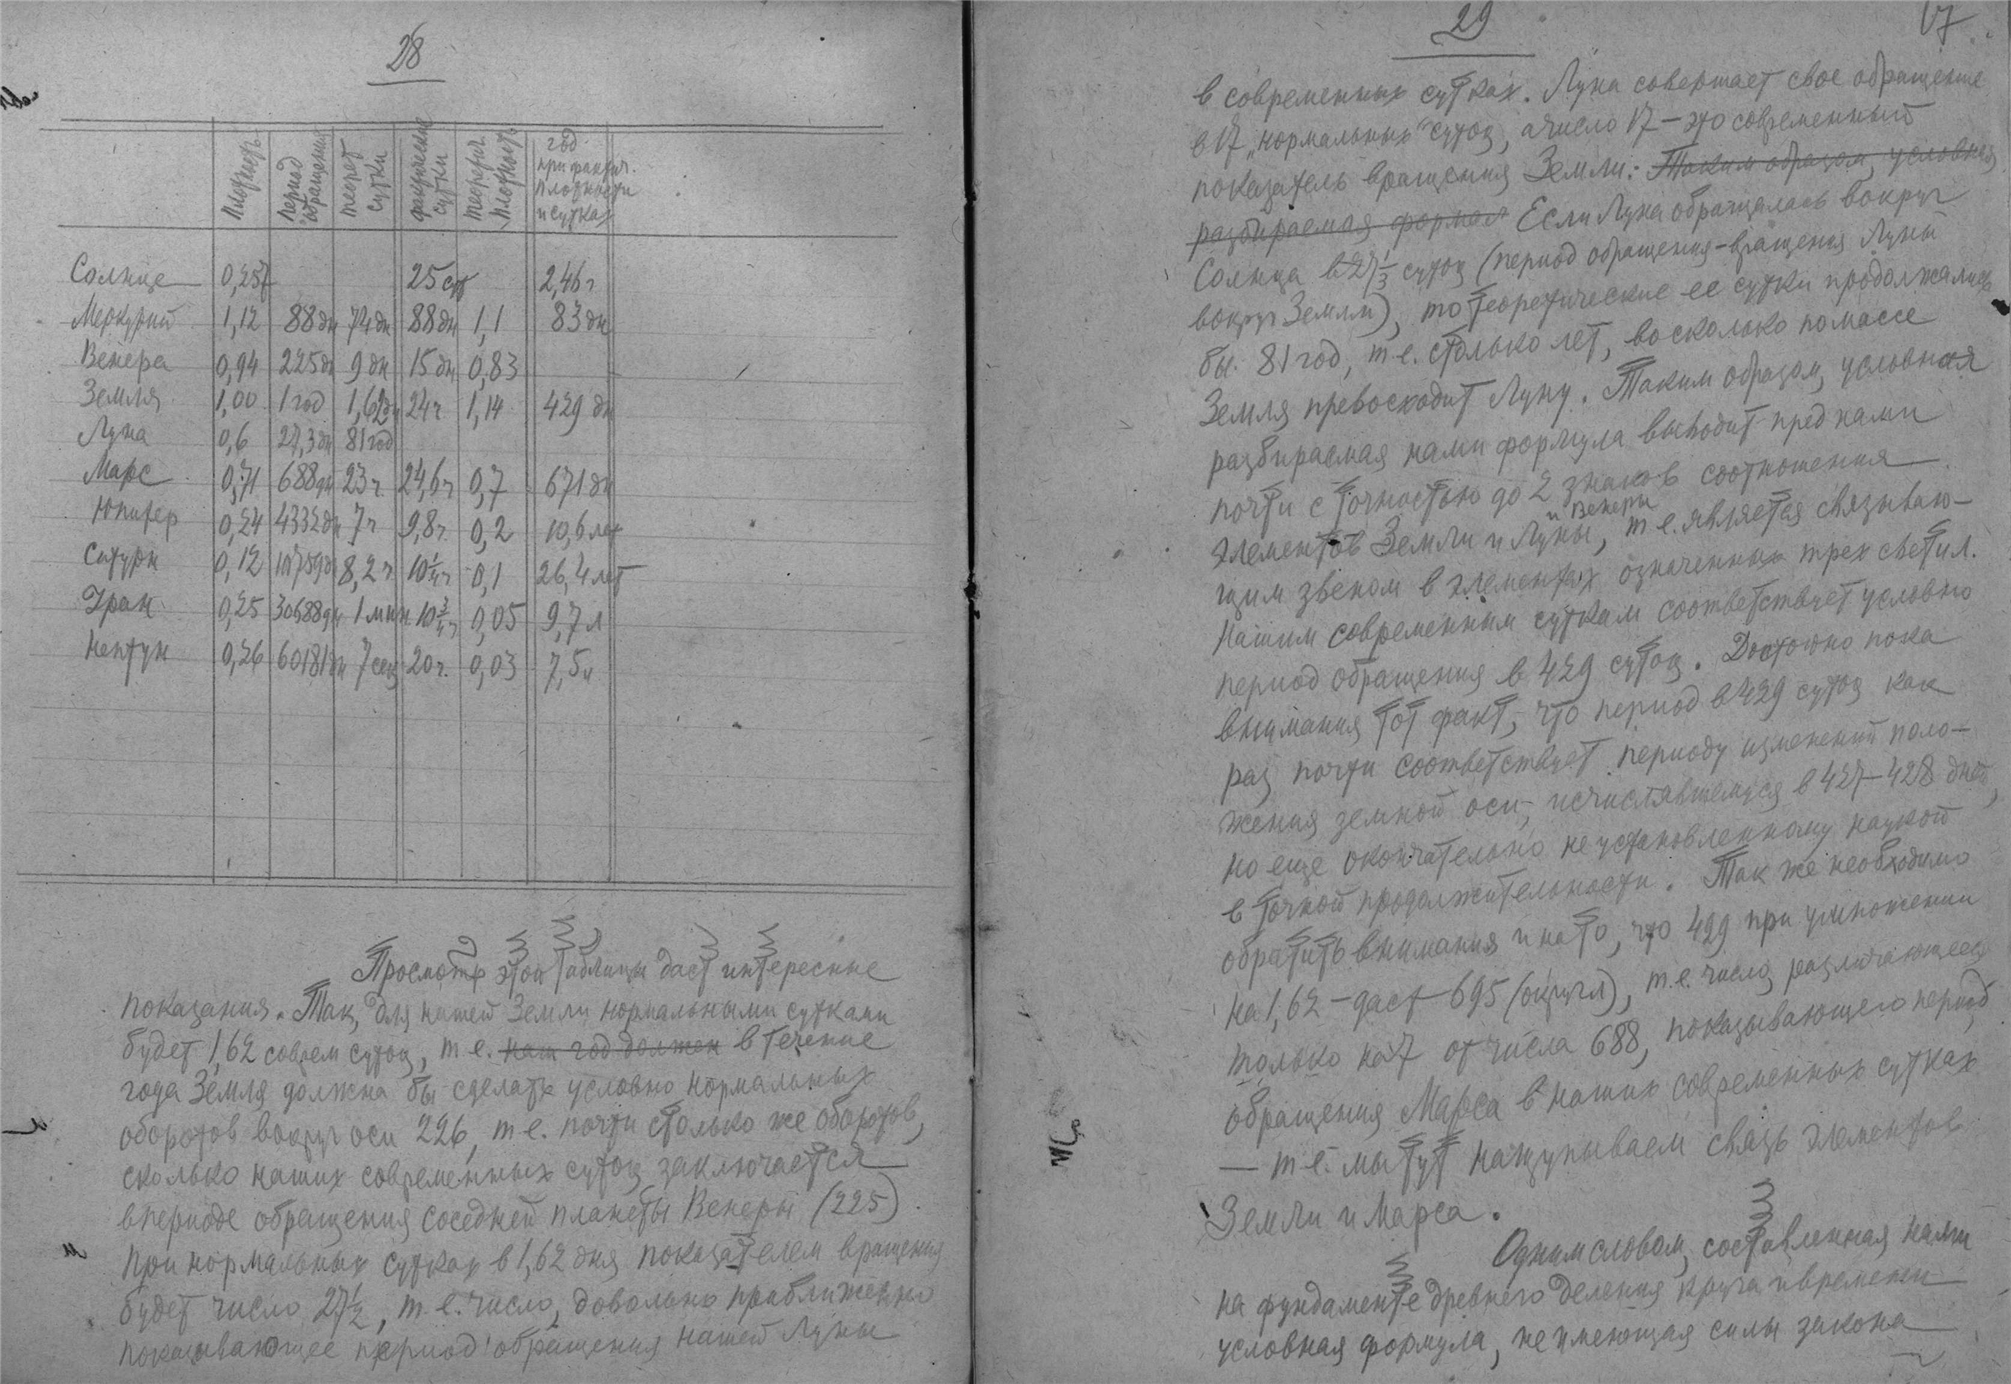 28
Плотность
Период обращения
теорет сутки
фактические сутки
теоретич. плотность
год при фактич. плотности и сутках
Солнце 0,257 25 сут 2,46 г
Меркурий 1,12 88 дн 74 дн 88 дн 1,1 83 дн
Венера 0,94 225 дн 9 дн 15 дн 0,83
Земля 1,00 1 год 1,62 дн 24 ч 1,14 429 дн
Луна 0,6 27,3 дн 81 год
Марс 0,71 688 дн 23 ч 24,6 ч 0,7 671 дн
Юпитер 0,24 4332 дн 7 ч 9,8 ч 0,2 10,6 лет
Сатурн 0,12 10759 дн 8,2 ч 10 1/4 ч 0,1 26,4 лет
Уран 0,25 30688 дн 1 мин 10 3/4 ч 0,05 9,7 л
Нептун 0,26 60181 дн 7 сек 20 ч. 0,03 7,5 л
Просмотр этой таблицы даст интересные
показания. Так, для нашей Земли нормальными сутками
будет 1,62 соврем суток, т.е. наш год должен в течение
года Земля должна бы сделать условно нормальных
оборотов вокруг оси 226, т.е. почти столько же оборотов,
сколько наших современных суток заключается
в периоде обращения соседней планеты Венеры (225).
При нормальных сутках в 1,62 дня показателем вращения
будет число 27 1/2, т.е. число, довольно приближенно
показывающее период обращения нашей Луны
29
17
в современных сутках. Луна совершает свое обращение
в 17 „нормальных“ суток, а число 17 – это современный
показатель вращения Земли. Таким образом, условная
разбираемая формул Если Луна обращалась вокруг
Солнца в 27 1/3 суток (период обращения-вращения Луны
вокруг Земли), то теоретические ее сутки продолжались
бы 81 год, т.е. столько лет, во сколько по массе
Земля превосходит Луну. Таким образом, условная
разбираемая нами формула выводит пред нами
почти с точностью до 2 знаков соотношения
элементов Земли и Луны, и Венеры т.е. является связываю-
щим звеном в элементах означенных трех светил.
Нашим современным суткам соответствует условно
период обращения в 429 суток. Достойно пока
внимания тот факт, что период в 429 суток как
раз почти соответствует периоду изменений поло-
жения земной оси, исчислявшемуся в 427–428 дней,
но еще окончательно не установленному наукой
в точной продолжительности. Так же необходимо
обратить внимания и на то, что 429 при умножении
на 1,62 – даст 695 (округл), т.е. число, различающееся
только на 7 от числа 688, показывающего период
обращения Марса в наших современных сутках
— т.е. мы тут нащупываем связь элементов
Земли и Марса.
Одним словом, составленная нами
на фундаменте древнего деления круга и времени
условная формула, не имеющая силы закона